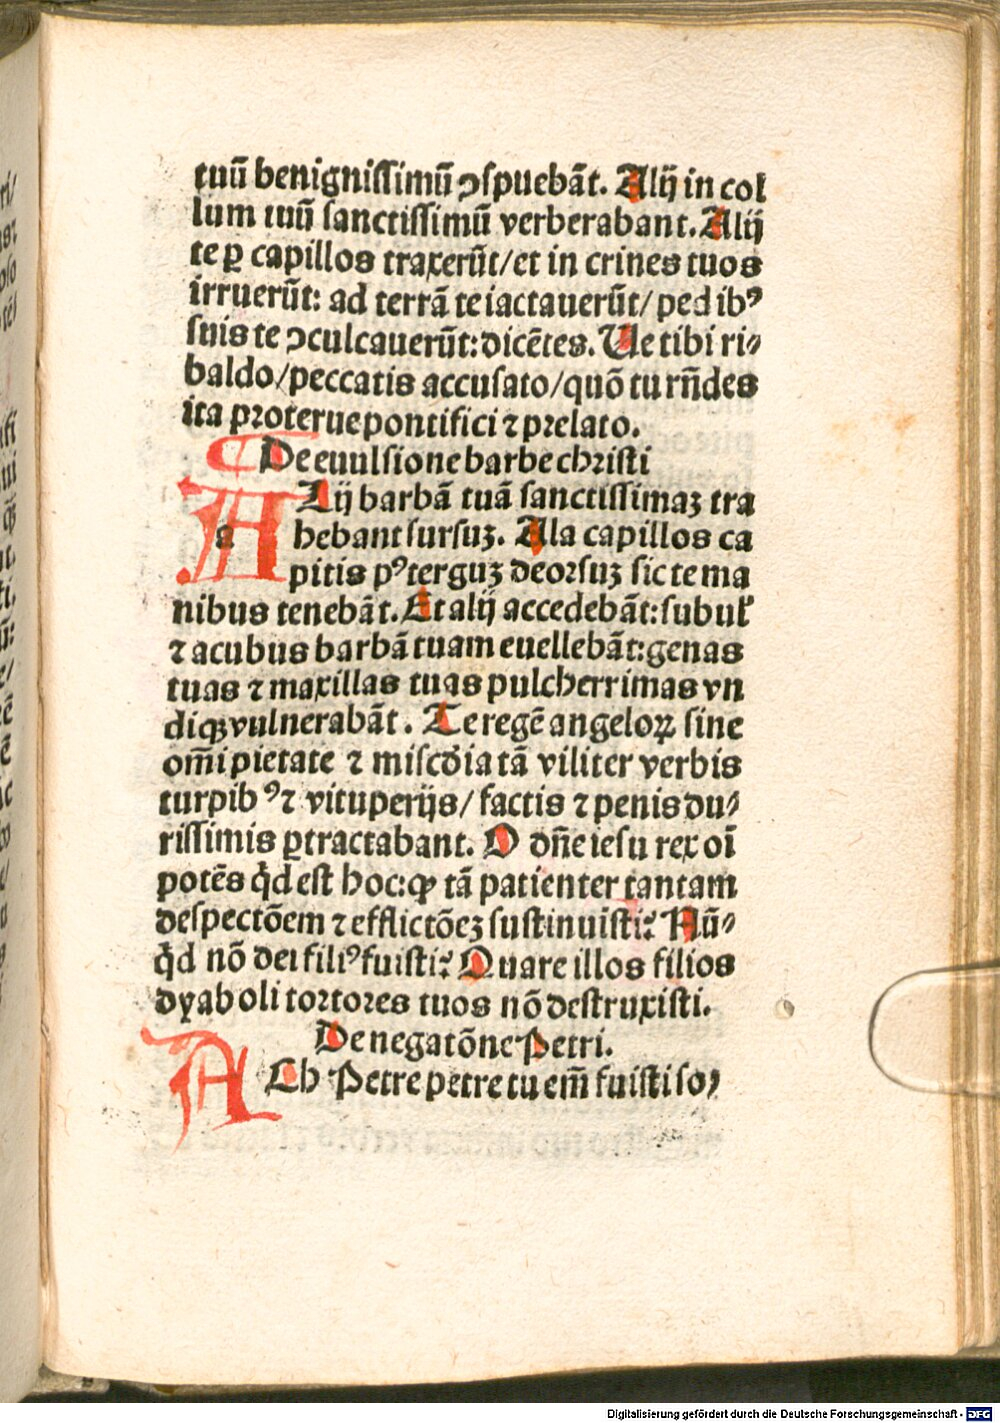 tuū benigniſſimū ꝯſpuebāt. Alij in col
lum tuū ſanctiſſimū verberabant. Alij
te ꝑ capillos traxerūt/et in crines tuos
irruerūt: ad terrā te iactauerūt/ pedibꝰ
ſuis te ꝯculcauerūt: dicētes. Ue tibi ri⸗
baldo/peccatis accuſato/quō tu rn̄des
ita proterue pontifici ⁊ prelato.
De euulſione barbe chriſti
Alij barbā tuā ſanctiſſimaꝫ tra
a hebant ſurſuꝫ. Alla capillos ca
pitis pꝰterguꝫ deorſuꝫ ſic te ma
nibus tenebāt. Et alij accedebāt: ſubul'
⁊ acubus barbā tuam euellebāt: genas
tuas ⁊ maxillas tuas pulcherrimas vn
diqꝫ vulnerabāt. Te regē angeloꝝ ſine
om̄i pietate ⁊ miſcd̄ia tā viliter verbis
turpibꝰ ⁊ vituperijs/ factis ⁊ penis du⸗
riſſimis ꝑtractabant. O dn̄e ieſu rex oī
potēs qd̄ eſt hoc: ꝙ tā patienter tantam
deſpectōem ⁊ efflictōeꝫ ſuſtinuiſti? Nū⸗
qd̄ nō dei filiꝰ fuiſti? Quare illos filios
dyaboli tortores tuos nō deſtruxiſti.
De negatōne Petri.
A Ch Petre petre tu em̄ fuiſti ſo⸗
Digitalisierung gefördert durch die Deutsche Forschungsgemeinschaft - DFG